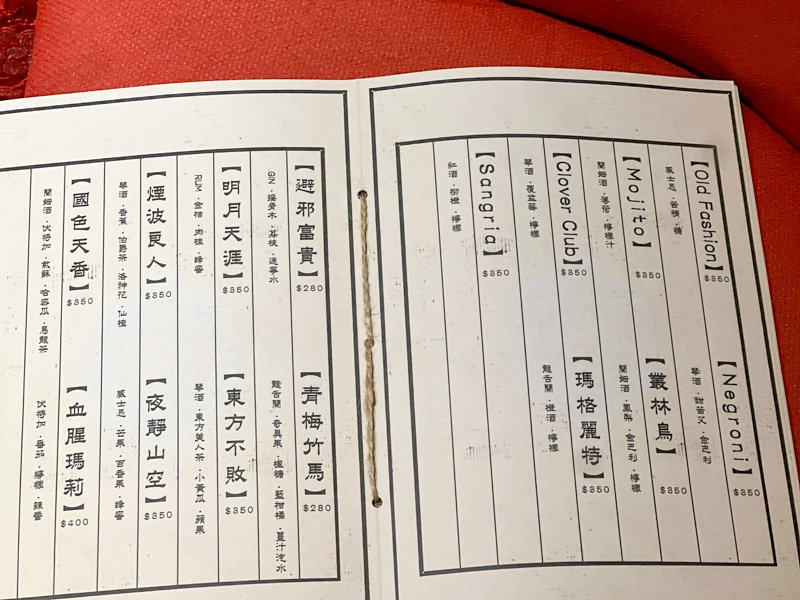 【Old Fashion】
$350
威士忌・苦精・糖
【Mojito】
$350
蘭姆酒・薄荷・檸檬汁
【Clover Club】
$350
琴酒・覆盆莓・檸檬
【Sangria】
$350
紅酒・柳橙・檸檬
【Negroni】
$350
琴酒・甜苦艾・金巴利
【叢林鳥】
$350
蘭姆酒・鳳梨・金巴利・檸檬
【瑪格麗特】
$350
龍舌蘭・橙酒・檸檬
【避邪富貴】
$280
GIN・接骨木・荔枝・通寧水
【明月天涯】
$350
RUM・金桔・肉桂・蜂蜜
【煙波良人】
$350
琴酒・香蕉・伯爵茶・洛神花・仙楂
【國色天香】
$350
蘭姆酒・伏特加・紫蘇・哈密瓜・烏龍茶
【青梅竹馬】
$280
龍舌蘭・奇異果・楓糖・藍柑橘・薑汁汽水
【東方不敗】
$350
琴酒・東方美人茶・小黃瓜・蘋果
【夜靜山空】
$350
威士忌・芒果・百香果・蜂蜜
【血腥瑪莉】
$400
伏特加・番茄・檸檬・辣醬